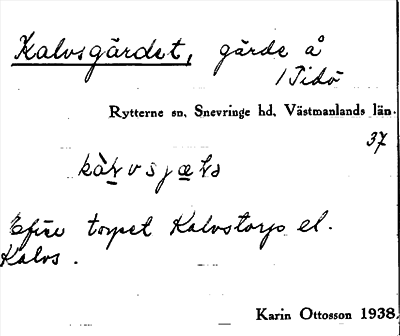 Kalvsgärdet, gärde å
/Tidö
Rytterne sn, Snevringe hd, Västmanlands län.
37
Efter torpet Kalvstorp el.
Kalvs.
Karin Ottosson 1938.